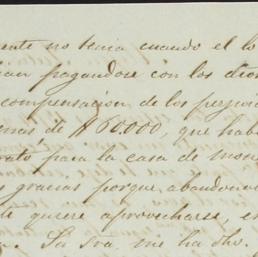 ente no tenia cuando el lo
ian pagandose con los
compensacion de los perjuici
mas de $60.000, que hab
para la casa de mon
s gracias porque abandona
te quiere aprovecharse, e
La Sra. me ha dho.